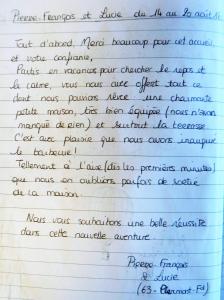 Pierre-François et Lucie du 14 au 20 août
Tout d'abord, Merci beaucoup pour cet accueil
et votre confiance,
Partis en vacances pour chercher le repos et
le calme, vous nous avez offert tout ce
dont nous pouvions rêver : une charmante
petite maison, très bien équipée (nous n'avons
manqué de rien) et surtout la terrasse.
C'est avec plaisir que nous avons inauguré
le barbecue!
Tellement à l'aise (dès les premières minutes)
que nous en oublions parfois de sortir
de la maison.
Nous vous souhaitons une belle réussite
dans cette nouvelle aventure.
Pierre-François
& Lucie
(63 - Clermont-Fd)